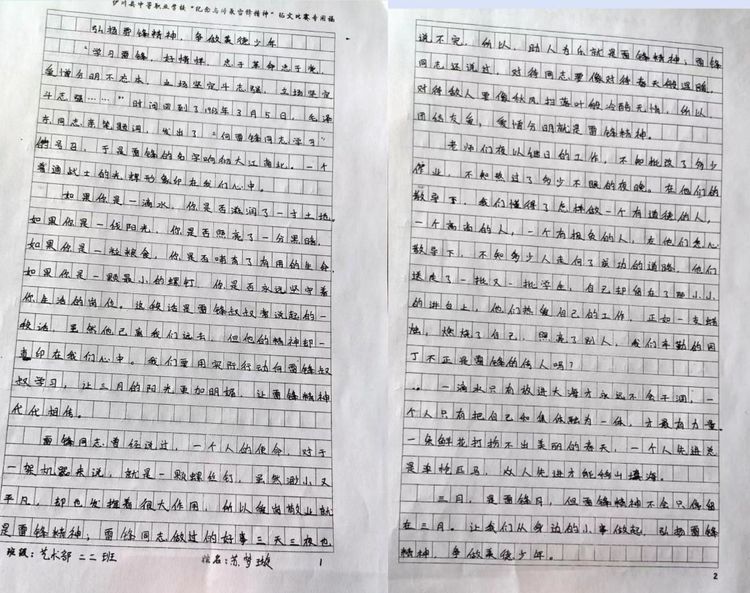 伊川县中等职业学校“纪念与川最雷锋精神”征文比赛专用稿
弘扬雷锋精神，争做美德少年
“学习雷锋，好榜样，忠于革命忠于党，
爱憎分明不忘本，立场坚定斗志强，立场坚定
斗志强……”时间回到了1963年3月5日，毛泽
东同志亲笔题词，发出了“向雷锋同志学习”
的号召，于是雷锋的名字响彻大江南北。一个
普通战士的光辉形象印在我们心中。
如果你是一滴水，你是否滋润了一寸土地。
如果你是一线阳光，你是否照亮了一分黑暗。
如果你是一粒粮食，你是否哺育了有用的生命。
如果你是一颗最小的螺钉，你是否永远坚守着
你生活的岗位。这段话是雷锋叔叔常说起的一
段话，虽然他已离我们远去，但他的精神却一
直印在我们心中。我们要用实际行动向雷锋叔
叔学习，让三月的阳光更加明媚，让雷锋精神
代代相传。
雷锋同志曾经说过，一个人的使命，对于
一架机器来说，就是一颗螺丝钉，虽然渺小又
平凡，却也发挥着很大作用，所以爱岗敬业就
是雷锋精神；雷锋同志做过的好事三天三夜也
班级：艺术部二二班 姓名：苏梦璇 1
说不完，所以，助人为乐就是雷锋精神；雷锋
同志还说过，对待同志要像对待春天般温暖，
对待敌人要像秋风扫落叶般冷酷无情，所以
团结友爱，爱憎分明就是雷锋精神。
老师们夜以继日的工作，不知批改了多少
作业，不知熬过了多少不眠的夜晚。在他们的
教导下，我们懂得了怎样做一个有道德的人，
一个高尚的人，一个有抱负的人，在他们悉心
教导下，不知多少人走向了成功的道路，他们
送走了一批又一批学生，自己却留在了那小小
的讲台上，他们热爱自己的工作，正如一支蜡
烛，燃烧了自己，照亮了别人，我们辛勤的园
丁不正是雷锋的传人吗？
一滴水只有放进大海才永远不会干涸，一
个人只有把自己和集体融为一体，才最有力量。
一朵鲜花打扮不出美丽的春天，一个人先进总
是单枪匹马，众人先进才能移山填海。
三月，是雷锋月，但雷锋精神不会只停留
在三月。让我们从身边的小事做起，弘扬雷锋
精神，争做美德少年。
2